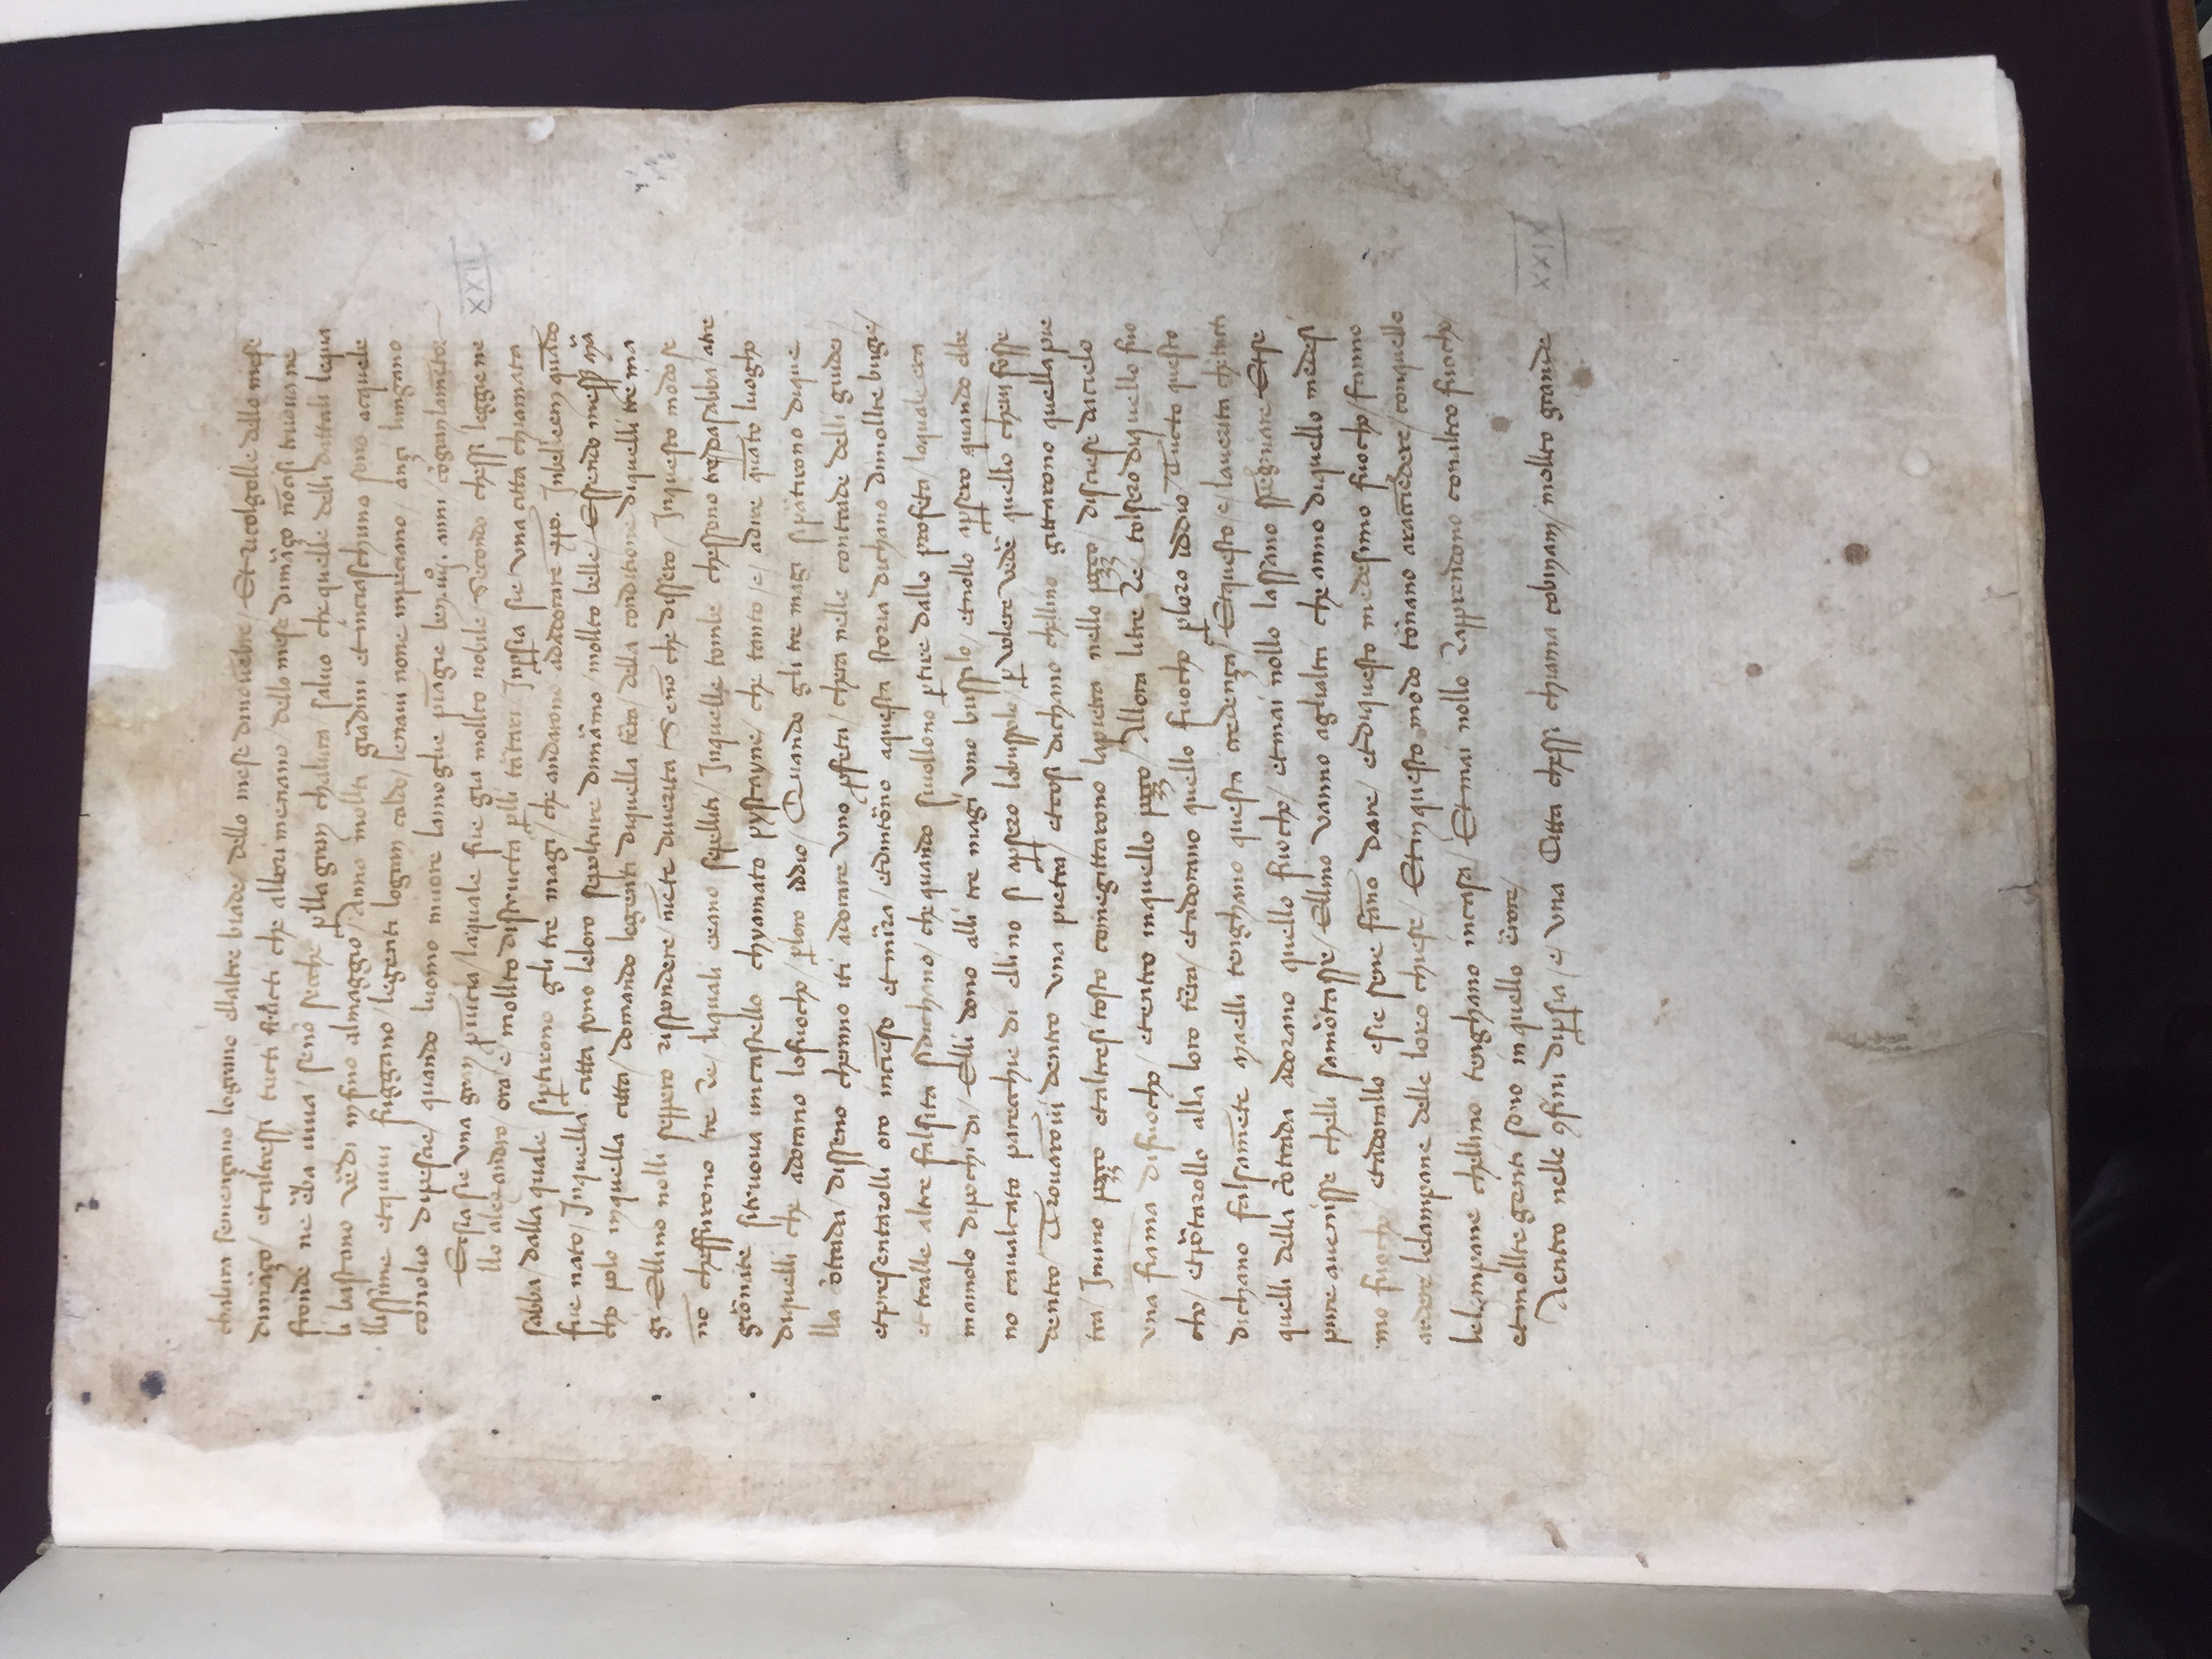 chalura semençano lograno ellaltre biade / dello mese dinouēbre / Et ricolgolle dello mese
dimāço / et altressi tucti fructi che albori menano / dello mese dimāço nōcisi truova ne
fronde ne ēba viva / senō secche ꝑlla gran chalura / salvo che quelle delli dattali lequa
li bastano vēdi infino almaggio / Anno mollti giādini et inciaschuno sono acquebe
llissime et quivi fuggano / legenti logran caldo / lenaui none inpeciano / anzi lungano
conolio dipescie / quando luomo muore lamoglie piāgie ben .iiij. anni / cōgranlamēto
Ersia sie una gran ꝓvīcia / laquale fue gia mollto nobile / Secondo chessi leggie ne
XXII
llo alexandro / ora e mollto distructa ꝑlli tātari / Inꝑsia sie una citta chiamata
sabba / dalla quale siꝑtirono gli tre magi / che andarono adadorare xp̄o. Inbelleem quādo
fue nato / Inquella citta sono leloro sepolture dimāmo / mollto belle / Essendo mess̄ mā
cho polo inquella citta / domando legenti diquella tēra / della conditione diquelli tre ma
gi Ellino nolli seppero rispondere / niēte diverita / Senō che dissero / Inquesto modo se
nō cheffurono tre Re / liquali erano sepelliti / Inquelle tombe chessono tre / dasabba / atre
giōnate sitruova uncastello chyamato pystayne / che tanto / e / adire quāto luogho
diquelli che adorano lofuocho / ꝑloro iddio / Quando gli tre magi sipātirono dique
lla cōtrada / disseno chenno iti adorare uno ꝓfeta / chera nelle contrade delli giudei /
etpresentarolli oro inciēso et mīra / etdintōno aquesta storia dichano dimollte bugie /
et tralle altre falsita sidichano / che quando sivollono ꝑtire dallo profeta / loquale era
mamolo dipochi di / Elli dono alli tre magi uno bussilo / etnollo aꝑsero quando ebbe
no cavalcato parecchie di ellino si aꝑsero lobussolo / ꝑ volere vedē quello chevi fosse
dentro / Trovarōvi dentro una pietra / etcosi dichano chellino gittarono quella pie
tra / Inuno pozzo etaltresi tosto comegittarono lapietra nello pozzo / disciese dacielo
una fiāma difuocho / etentro inquello pozzo / Allora litre Re / tolsero diquello fuo
cho / etpōtarollo alla loro tēra / etadorano quello fuocho ꝑloro iddio / Tucto questo
dichano falsamēte maelli tenghano questa credença / Etquesto / e / laverita chetucti
quelli della cōtrada adorano quello fuocho / etmai nollo lassano spegniare Etse
pure avenisse chelli samōtasse / Ellino vanno aglialtri che anno diquello medesi
mo fuocho / etadorallo esie sene fāno dare / etdiquesto medesimo fuocho / fanno
ardere lelampane delle loro chiese / Etinquesto modo tōnano araccīedere / conquello
lelampane chellino tenghano incasa / Etmai nollo Rapprendono conaltro fuocho /
etmollte genti sono in quello ērore /
Aentro nelle ꝯfini diꝑsia / e / una Citta chessi chiama cobinam / mollto grande
XXIX